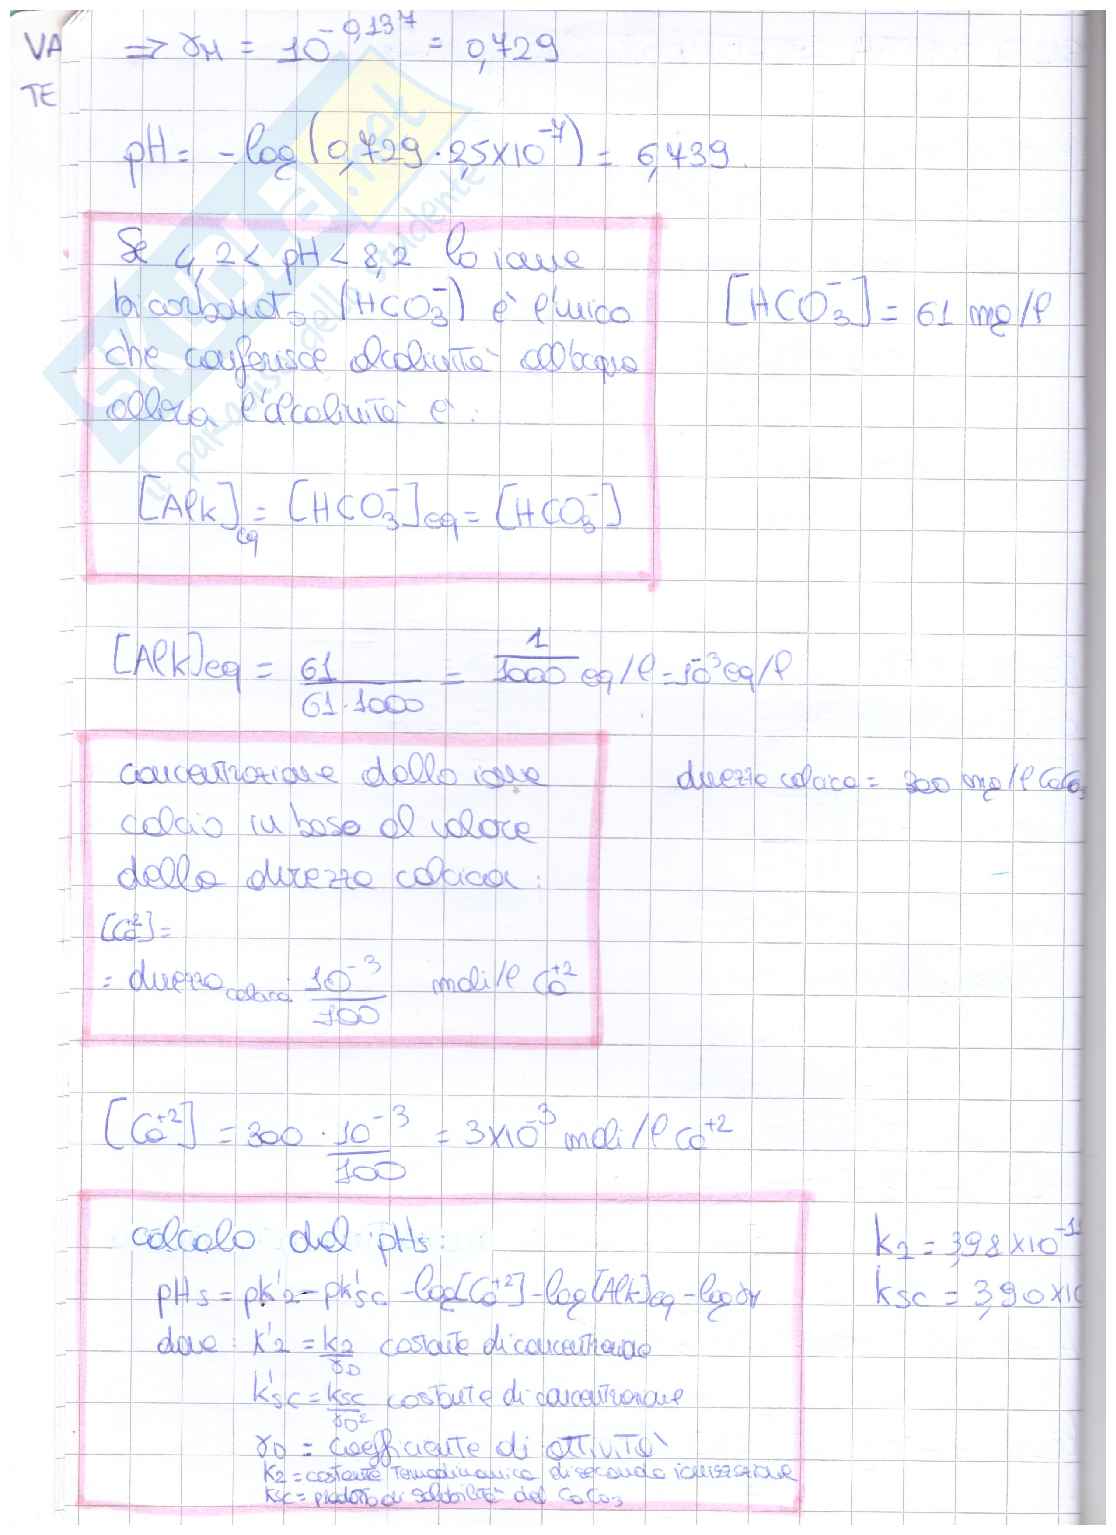 VA
TE
⇒ γM = 10^-0,137 = 0,729
pH = -log(0,729·2,5x10^-7) = 6,739
Se 4,2 < pH < 8,2 lo ione
bicarbonato (HCO3^-) è l'unico
che conferisce alcalinità all'acqua
allora l'alcalinità è:
[HCO3^-] = 61 mg/l
[Alk]eq = [HCO3^-]eq = [HCO3^-]
[Alk]eq = 61/(61·1000) = 1/1000 eq/l = 10^-3 eq/l
concentrazione dello ione
calcio in base al valore
della durezza calcica:
[Ca^+2] =
= durezza calcica · 10^-3/100 moli/l Ca^+2
durezza calcica = 300 mg/l CaCO3
[Ca^+2] = 300 · 10^-3/100 = 3x10^-3 moli/l Ca^+2
calcolo del pHs:
pHs = pk'2 - pk'sc - log[Ca^+2] - log[Alk]eq - logγM
dove: k'2 = k2/γD costante di concentrazione
k'sc = ksc/γD^2 costante di concentrazione
γD = coefficiente di attività
K2 = costante termodinamica di seconda ionizzazione
Ksc = prodotto di solubilità del CaCO3
k2 = 3,98x10^-11
ksc = 3,90x10
SKUOLA.net
il paradiso dello studente